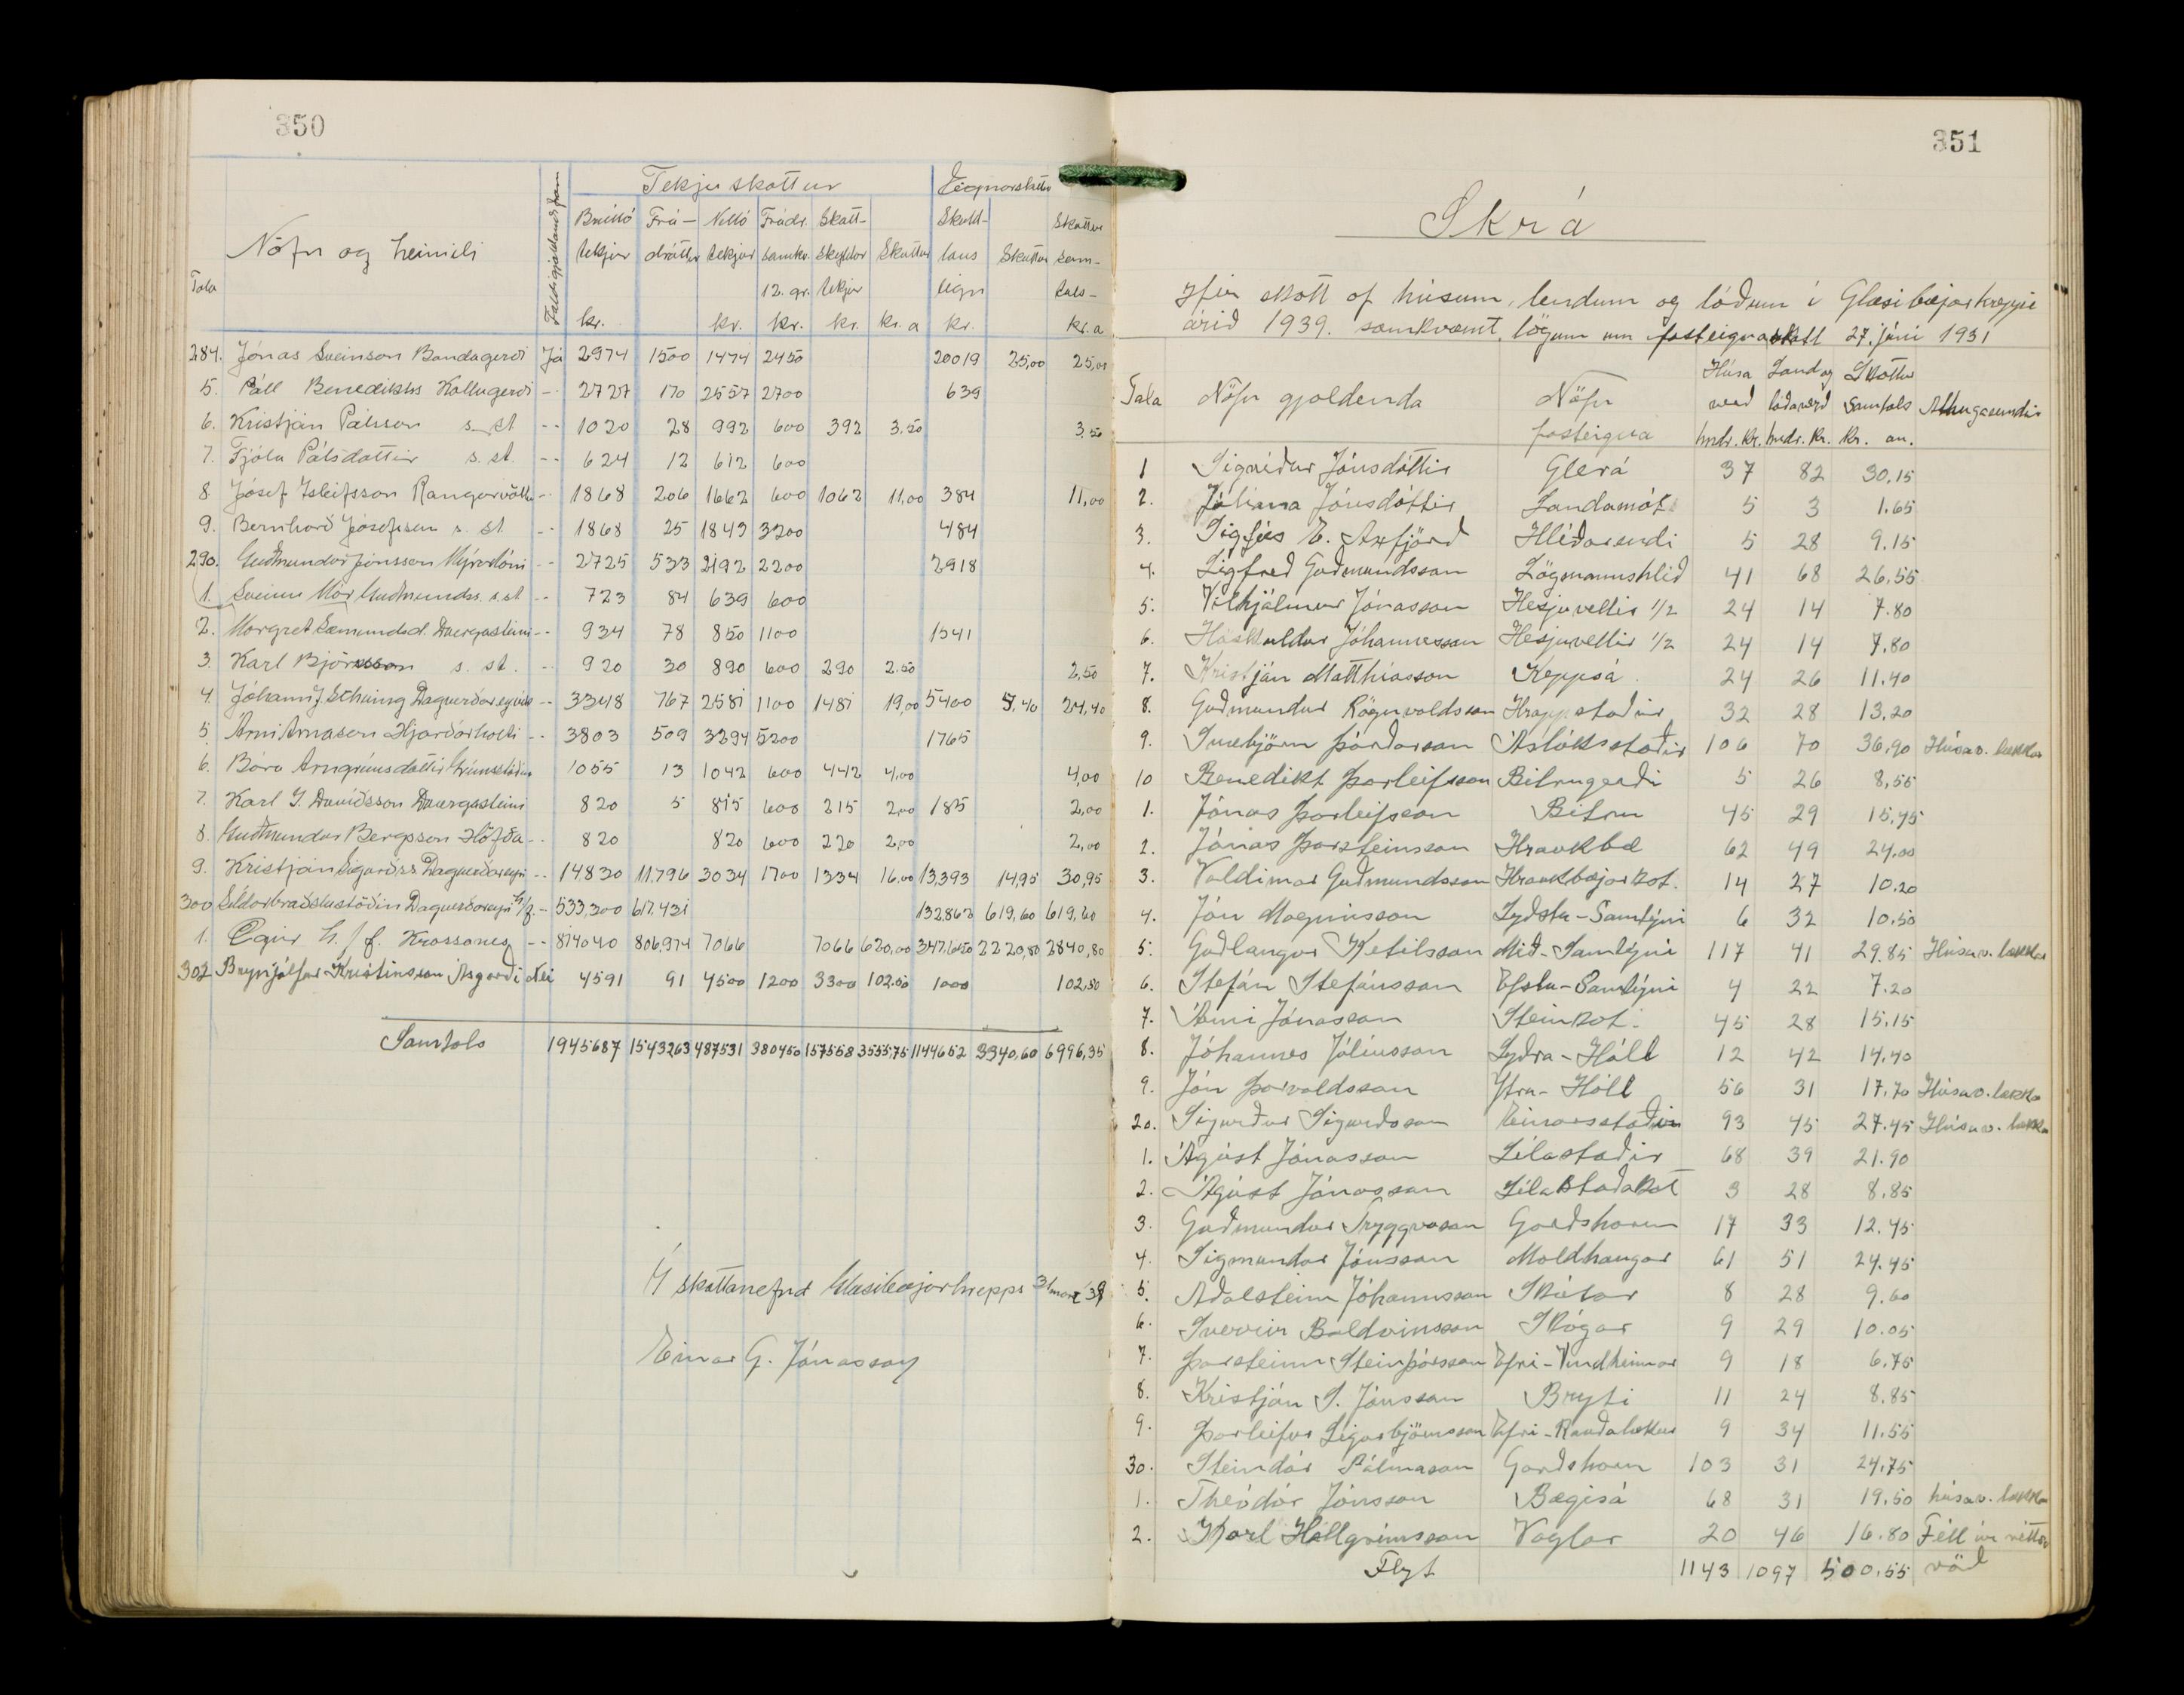 350
Tekjuskattur Eignarskattur
Tala Nöfn og heimili Brúttó tekjur kr. Frá-dráttur Nettó tekjur kr. Frádr. samkv. 12. gr. kr. Skatt-skyldar tekjur kr. Skattur kr. a Skuld-laus eign kr. Skattur Skattur sam-tals- kr. a
284. Jónas Sveinson Bandagerði Já 2974 1500 1474 2450 20019 25,00 25,00
5. Páll Benedikts Kollugerði -- 2727 170 2557 2700 639
6. Kristján Pálsson s. st -- 1020 28 992 600 392 3.50 3,50
7. Fjóla Pálsdóttir s. st. -- 624 12 612 600
8. Jósef Isleifsson Rangárvöllu -- 1868 206 1662 600 1062 11,00 384 11,00
9. Bernharð Jósefsson s. st. -- 1868 25 1843 3200 484
290. Guðmundur Jónsson Mýrarlóni -- 2725 533 2192 2200 2918
1. Sveinn Már Guðmunds. s. st -- 723 84 639 600
2. Margret Sæmundsd. Dvergasteini -- 934 78 850 1100 1541
3. Karl Björnsson s. st. -- 920 30 890 600 290 2.50 2,50
4. Jóhann J. Schiöng Dagverðareyri -- 3348 767 2581 1100 1481 19,00 5400 5,40 24,40
5. Árni Árnason Hjarðarholti -- 3803 509 3294 5200 1765
6. Bára Arngrímsdóttir 1055 13 1042 600 442 4,00 4,00
7. Karl G. Davíðsson Dvergasteini 820 5 815 600 215 2,00 185 2,00
8. Guðmundur Bergsson Höfða -- 820 820 600 220 2,00 2,00
9. Kristján Sigurðss Dagverðareyri -- 14830 11.796 3034 1700 1334 16,00 13,393 14,95 30,95
300 Síldarbræðslustöðin Dagverðareyri h/f. - 533,300 617.431 132,862 619,60 619,60
1. Ægir h/f. Krossanes -- 814040 806,974 7066 7066 620,00 347.650 2220,80 2840,80
302 Brynjólfur Kristinsson Ásgarði Nei 4591 91 4500 1200 3300 102.50 1000 102,50
Samtals 1945687 1543263 487531 380450 157558 3555.75 1144652 3340,60 6996,35
Í skattanefnd Glæsibæjarhrepps 31 marz '39
Einar G. Jónasson
351
Skrá
Yfir skatt af húsum, lendum og lóðum í Glæsibæjarhreppi
árið 1939. samkvæmt, lögum um fasteignaskatt 27. júní 1931
Tala Nöfn gjaldenda Nöfn fasteigna Húsa verð hndr. kr. Land og lóðaverð hndr. kr. Skattur samtals kr. au. Athugasemdir
1 Sigríður Jónsdóttir Glerá 37 82 30,15
2. Júlíana Jónsdóttir Landamót 5 3 1.65
3. Sigfús E. Axfjörð Hlíðarendi 5 28 9.15
4. Sigfred Guðmundsson Lögmannshlíð 41 68 26,55
5. Vilhjálmur Jónasson Hesjuvellir 1/2 24 14 7.80
6. Höskuldur Jóhannesson Hesjuvellir 1/2 24 14 7,80
7. Kristján Matthíasson Keppsá 24 26 11.40
8. Guðmundur Rögnvaldsson Hrappstaðir 32 28 13,20
9. Snæbjörn Þórðarson Ásláksstaðir 106 70 36,90 Húsav. lækka
10 Benedikt Þorleifsson Bitrugerði 5 26 8,55
1. Jónas Þorleifsson Bitru 45 29 15,45
2. Jónas Þorsteinsson Hraukbæ 62 49 24,00
3. Valdimar Guðmundsson Hraukbæjarkot. 14 27 10.20
4. Jón Magnússon Syðsta-Samtýni 6 32 10,50
5. Guðlaugur Ketilsson Mið-Samtýni 117 41 29.85 Húsav. lækka
6. Stefán Stefánsson Efsta-Samtýni 4 22 7.20
7. Árni Jónasson Steinkot. 45 28 15,15
8. Jóhannes Júlíusson Syðra-Hóll 12 42 14,40
9. Jón Þorvaldsson Ytra-Hóll 56 31 17,70 Húsav. lækka
20. Sigurður Sigurðsson Einarsstaðir 93 45 27.45 Húsav. lækka
1. Ágúst Jónasson Sílastaðir 68 39 21.90
2. Ágúst Jónasson Sílastaðakot 3 28 8,85
3. Guðmundur Tryggvason Garðshorn 17 33 12.45
4. Sigmundur Jónsson Moldhaugar 61 51 24.45
5. Aðalsteinn Jóhannsson Skútar 8 28 9.60
6. Sverrir Baldvinsson Skógar 9 29 10.05
7. Þorsteinn Steinþórsson Efri-Vindheimar 9 18 6,75
8. Kristján S. Jónsson Bryti 11 24 8.85
9. Þorleifur Sigurbjörnsson Efri-Rauðalækur 9 34 11.55
30. Steindór Pálmason Garðshorn 103 31 24,75
1. Theódór Jónsson Bægisá 68 31 19.50 húsav. lækka
2. Karl Hallgrímsson Vaglar 20 46 16.80 Féll úr
Flyt 1143 1097 500.55